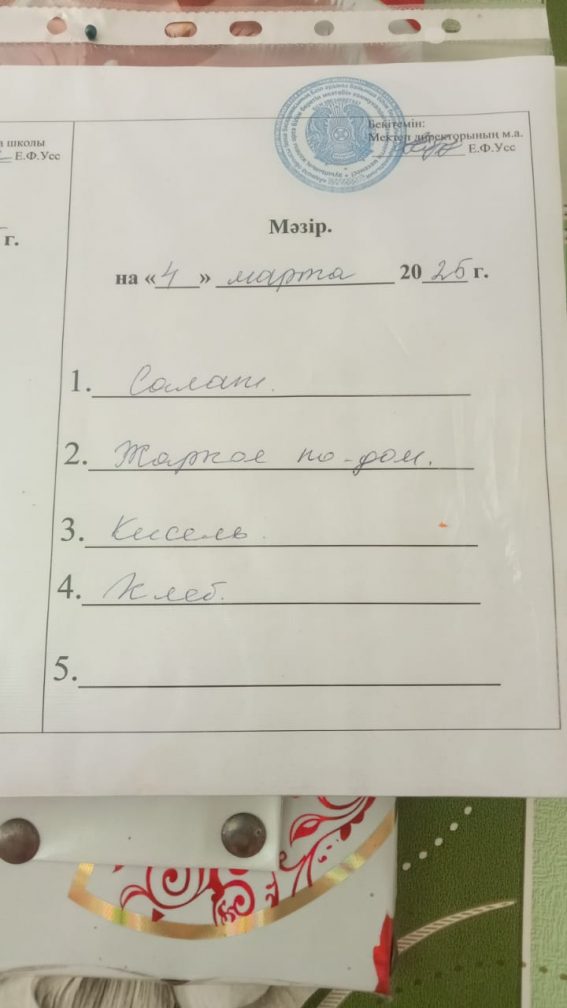 а школы
Е.Ф.Усс
г.
Бекітемін:
Мектеп директорының м.а.
Е.Ф.Усс
Мәзір.
на «4» марта 2025 г.
1. Салат.
2. Жаркое по-дом.
3. Кисель.
4. Хлеб.
5.